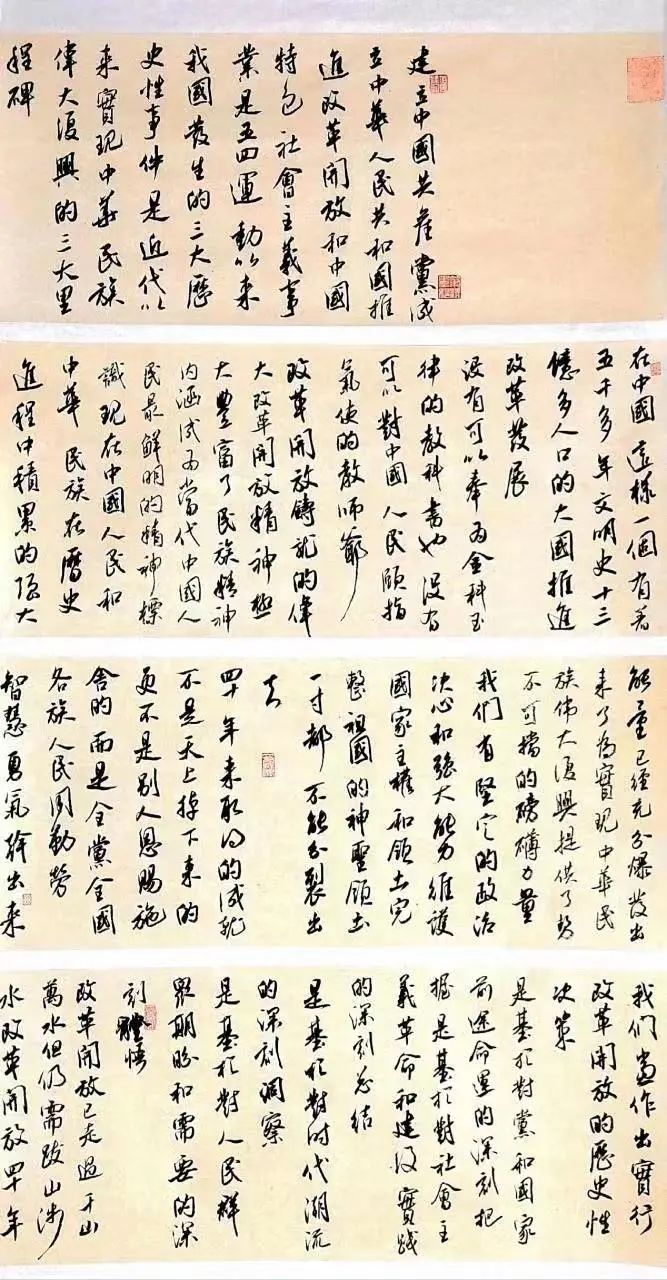 建立中國共產黨成
立中華人民共和國推
進改革開放和中國
特色社會主義事
業是五四運動以來
我國發生的三大歷
史性事件是近代以
來實現中華民族
偉大復興的三大里
程碑
在中國這樣一個有著
五千多年文明史十三
億多人口的大國推進
改革發展
沒有可以奉為金科玉
律的教科書也沒有
可以對中國人民頤指
氣使的教師爺
改革開放鑄就的偉
大改革開放精神極
大豐富了民族精神
內涵成為當代中國人
民最鮮明的精神標
識現在中國人民和
中華民族在曆史
進程中積累的強大
能量已經充分爆發出
來了為實現中華民
族偉大復興提供了勢
不可擋的磅礴力量
我們有堅定的政治
決心和強大能力維護
國家主權和領土完
整祖國的神聖領土
一寸都不能分裂出
去
四十年來取得的成就
不是天上掉下來的
更不是別人恩賜施
舍的而是全黨全國
各族人民用勤勞
智慧勇氣幹出來
我們黨作出實行
改革開放的歷史性
決策
是基於對黨和國家
前途命運的深刻把
握是基於對社會主
義革命和建設實踐
的深刻总結
是基於對时代潮流
的深刻洞察
是基於對人民群
眾期盼和需要的深
刻體悟
改革開放已走過千山
萬水但仍需跋山涉
水改革開放四十年